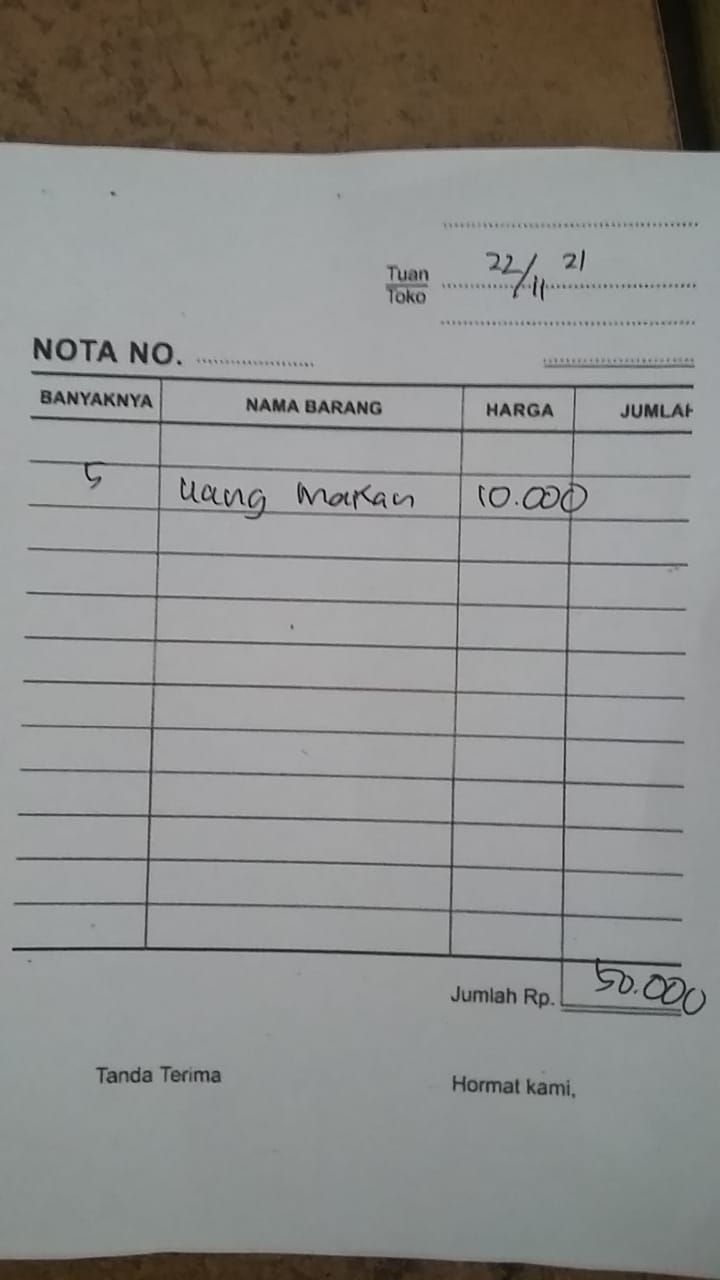 22/11 21
Tuan
Toko
NOTA NO.
BANYAKNYA NAMA BARANG HARGA JUMLAH
5 uang makan 10.000
Jumlah Rp. 50.000
Tanda Terima Hormat kami,